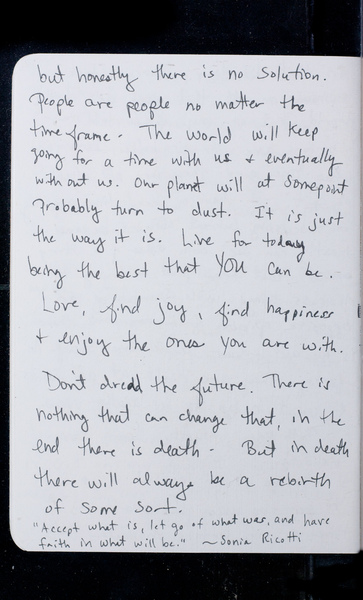 but honestly there is no solution.
People are people no matter the
time frame. The world will keep
going for a time with us & eventually
with out us. Our planet will at somepoint
probably turn to dust. It is just
the way it is. Live for today
being the best that YOU can be.
Love, find joy, find happiness
& enjoy the ones you are with.
Don't dread the future. There is
nothing that can change that, in the
end there is death - But in death
there will always be a rebirth
of some sort.
"Accept what is, let go of what was, and have
faith in what will be." ~Sonia Ricotti